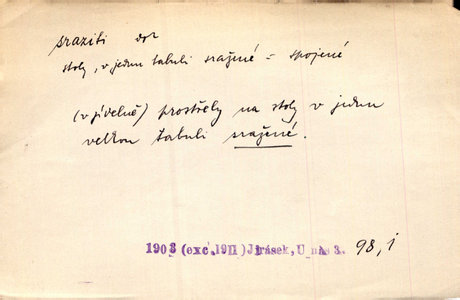 sraziti dok
stoly, v jednu tabuli sražené = spojené
(v jídelně) prostřely na stoly v jednu
velkou tabuli sražené.
1903 (exc. 1911) Jirásek, U nás 3. 98, 1